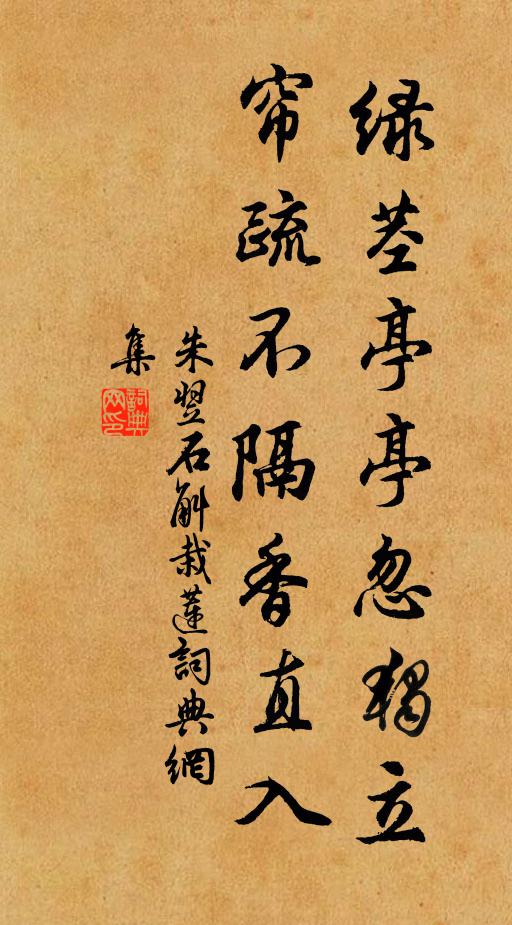 绿茎亭亭忽独立
帘疏不隔香直入
朱翌石斛栽莲詞典網
集
詞典网印